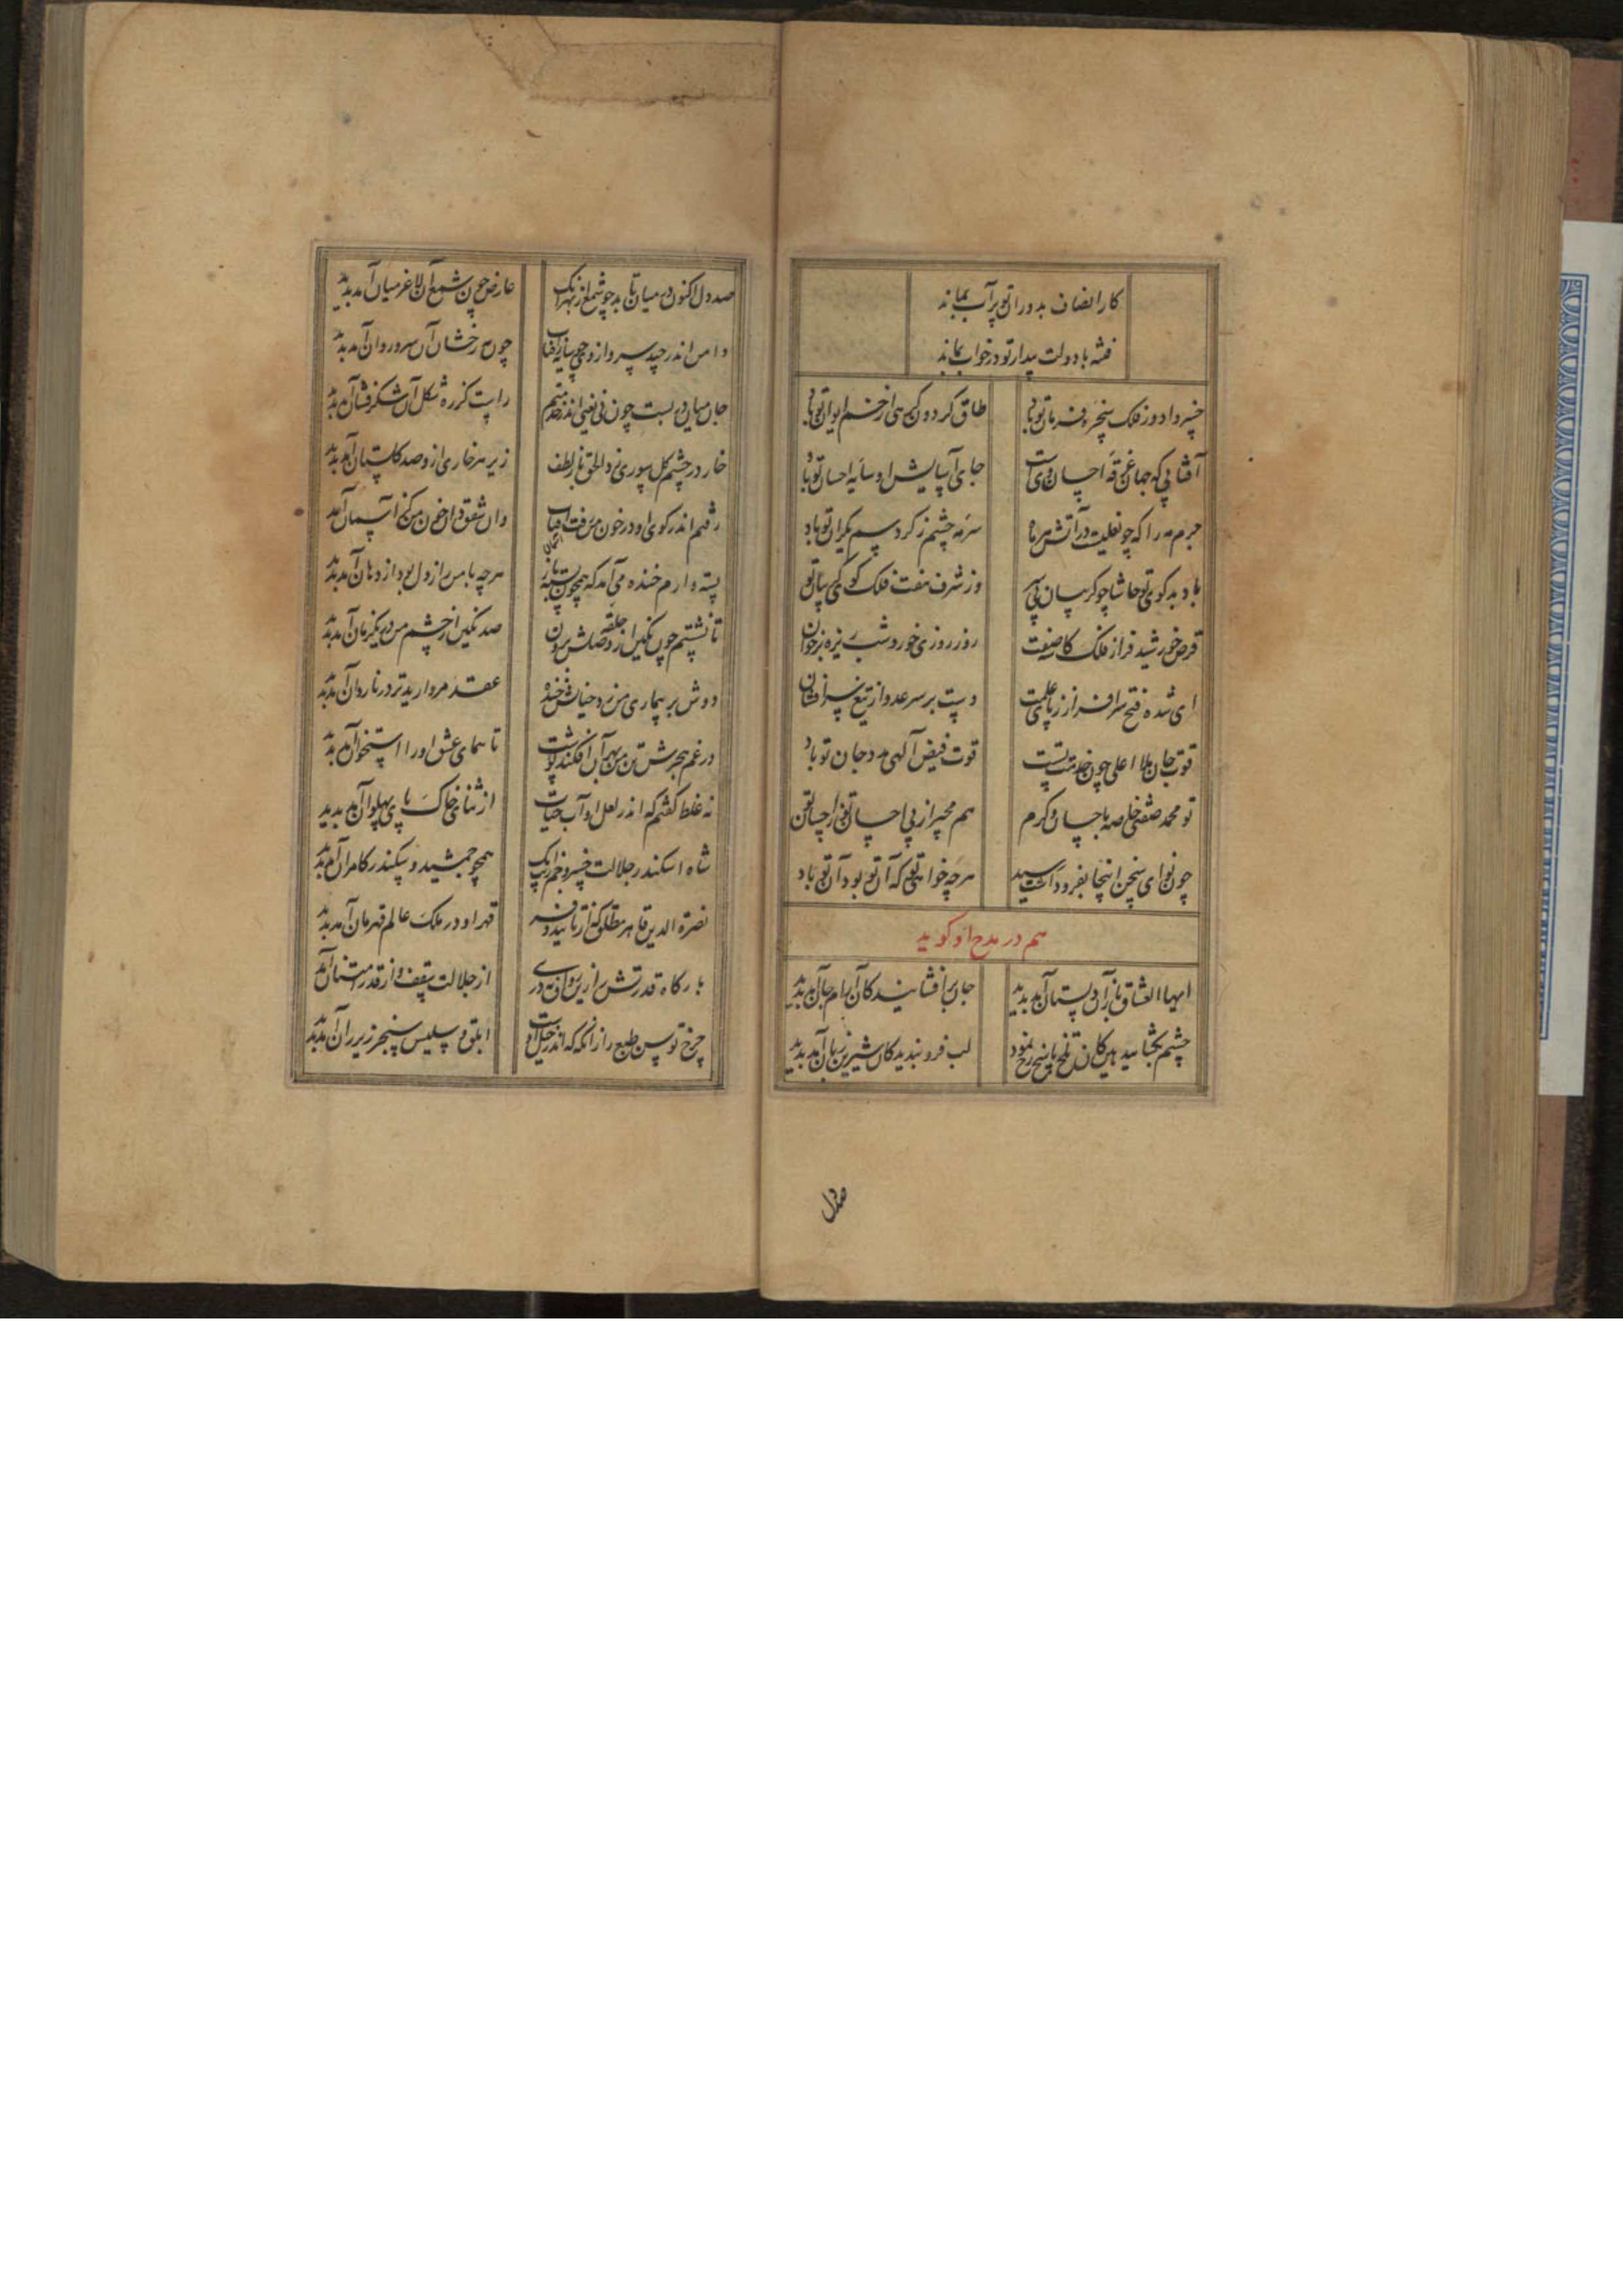 کار انصاف بدوران تو پرآب بماند
فتنه با دولت بیدار تو در خواب بماند
خسروا دور فلک سخره فرمان تو باد
طاق کردون کهی از خم ایوان تو باد
آفتابی که جهان غرقه احسان ویست
جای آسایش او سایه احسان تو باد
جرم مه را که چو نعلیست در آتش هر ماه
سرمه چشم ز کرد سم یکران تو باد
باد بدکوی تو حاشا چو کریبان بی سر
وز شرف هفت فلک کوی
قرص خورشید فراز فلک کاسه صفت
روز روزی خور و شب ریزه بر خوان
ای شده فتح سرافراز ز پای علمت
دست بر سر عدو از تیغ سرافشان
قوت جان ملأ اعلی چون خدمت تست
قوت فیض آلهی مدد جان تو باد
تو محمد صفتی خاصه باحسان و کرم
هم مجیر از پی احسان تو
چون نوای سخن اینجا بفرود آشت رسید
هرچه خواهی تو که آن تو بود آن تو باد
هم در مدح او کوید
ایها العشاق باز آن دلستان آمد بدید
جان برافشانید کان آرام جان آمد بدید
چشم بکشایید هین کان تلخ پاسخ رخ نمود
لب فرو بندید کان شیرین زبان آمد بدید
صد دل
صد دل اکنون در میان تابد چو شمع از بهر آنک
عارض چون شمع آن لاغر میان آمد بدید
دامن اندر چید سرو از وی چو سایه زافتاب
چون مه رخشان آن سرو روان آمد بدید
جان میان در بست چون نی یعنی اندر خدمتم
راست کز ره شکل آن شکرفشان آمد بدید
خار در چشم کل سوری زد الحق تا ز لطف
زیر هر خاری ازو صد کلستان آمد بدید
رفتم اندر کوی او در خون من رفت آفتاب
وان شفق زان خون من کز آسمان آمد
پسته وارم خنده می آمد که همچون پسته باز
هرچه با من راز دل بود از دهان آمد بدید
تا نشستم چون نکین از حلقه وصلش برون
صد نکین از چشم من در یکزمان آمد بدید
دوش بر بیماری من زد خیالش خنده
عقد مروارید تر در ناردان آمد بدید
در غم هجرش تن من بهر آن افکند پوست
تا همای عشق او را استخوان آمد بدید
نه غلط کفتم که اندر لعل او آب حیات
از ثنای خاک پای پهلوان آمد بدید
شاه اسکندر جلالت خسرو جم رتبت آنک
همچو جمشید و سکندر کامران آمد بدید
نصرة الدین قاهر مطلق که از تایید و فر
قهر او در ملک عالم قهرمان آمد بدید
بارکاه قدرتش را زین رواق نه دری
از جلالت سقف و از قدر آستان آمد
چرخ توسن طبع را زانکه که اندر خیل اوست
ابلق و سلیس سنجر زیر ران آمد بدید